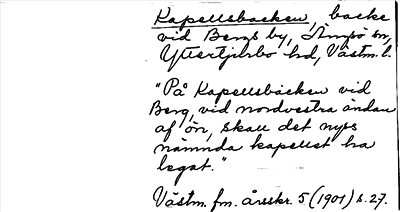 Kapellsbacken, backe
vid Bergs by, Ängsö sn,
Yttertjurbo hd, Västm. l.
"På Kapellsbacken vid
Berg, vid nordvestra ändan
af ön, skall det nyss
nämnda kapellet ha
legat."
Västm. fm. årsskr. 5 (1901) s. 27.